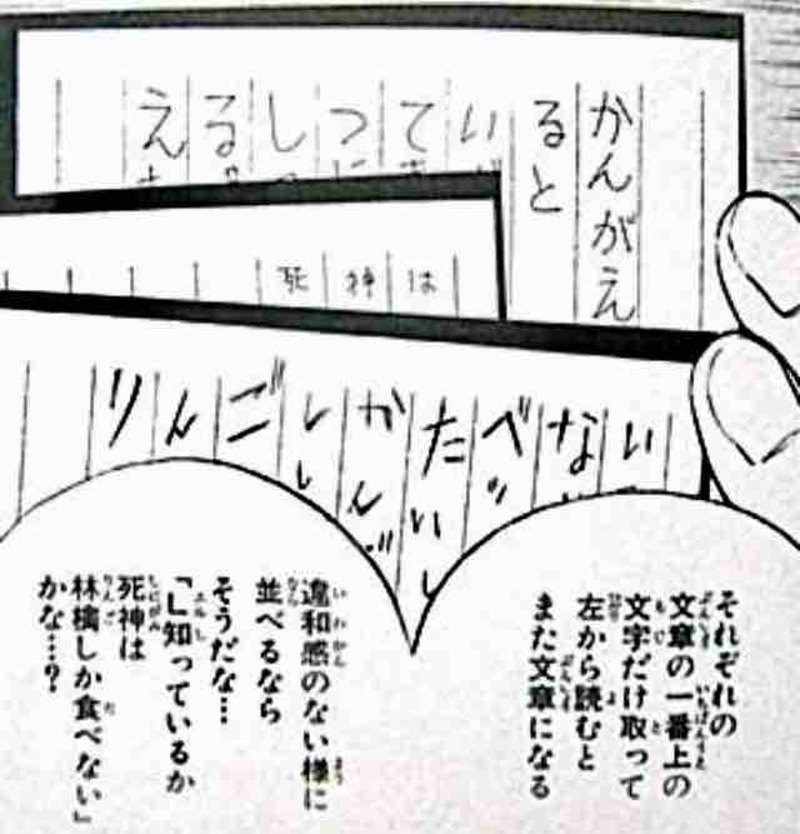 かんがえ
ると
い
て
つ
し
る
え
は
神
死
い
な
べ
たい
かん
し
ご
ん
り
それぞれの
文章の一番上の
文字だけ取って
左から読むと
また文章になる
違和感のない様に
並べるなら
そうだな…
「L知っているか
死神は
林檎しか食べない」
かな…?